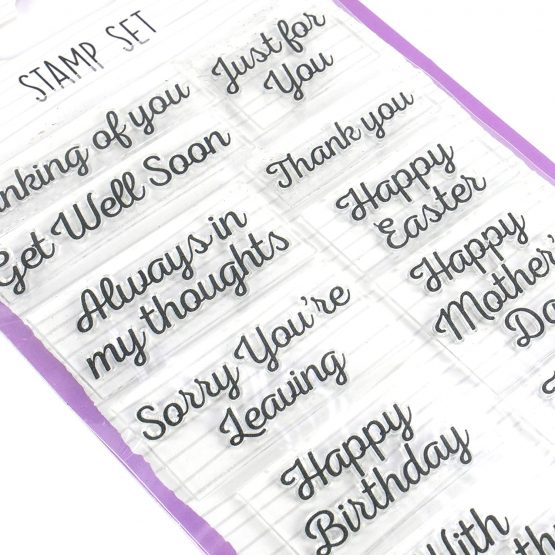 STAMP SET
Just for
You
of you
Get Well Soon
Thank you
Happy
Easter
Always in
my thoughts
Happy
Mother's
Sorry You're
Leaving
Happy
Birthday
With